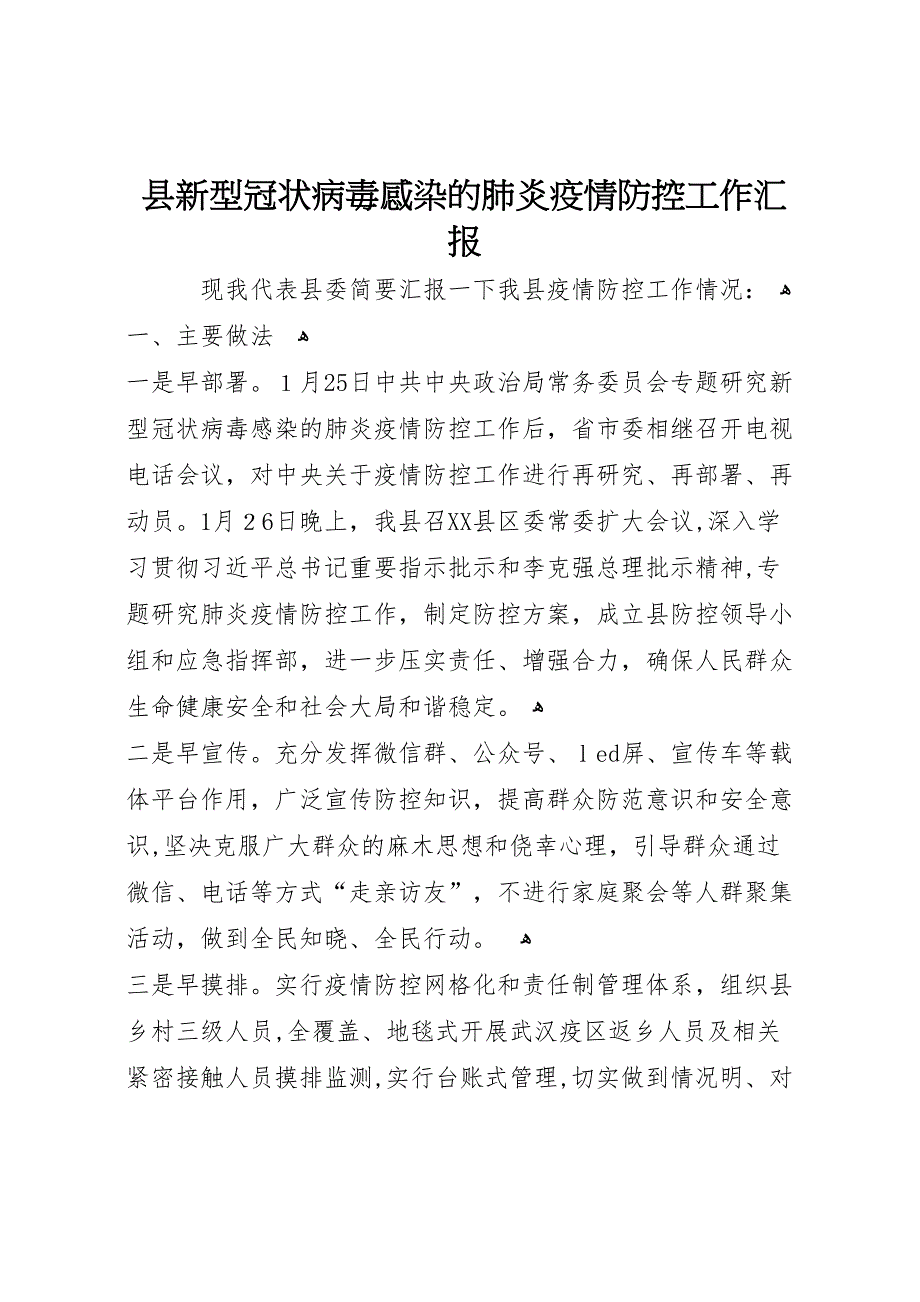 县新型冠状病毒感染的肺炎疫情防控工作汇
报
现我代表县委简要汇报一下我县疫情防控工作情况： ﻫ
一、主要做法 ﻫ
一是早部署。1月25日中共中央政治局常务委员会专题研究新
型冠状病毒感染的肺炎疫情防控工作后，省市委相继召开电视
电话会议，对中央关于疫情防控工作进行再研究、再部署、再
动员。1月26日晚上，我县召XX县区委常委扩大会议,深入学
习贯彻习近平总书记重要指示批示和李克强总理批示精神,专
题研究肺炎疫情防控工作，制定防控方案，成立县防控领导小
组和应急指挥部，进一步压实责任、增强合力，确保人民群众
生命健康安全和社会大局和谐稳定。 ﻫ
二是早宣传。充分发挥微信群、公众号、led屏、宣传车等载
体平台作用，广泛宣传防控知识，提高群众防范意识和安全意
识,坚决克服广大群众的麻木思想和侥幸心理，引导群众通过
微信、电话等方式“走亲访友”，不进行家庭聚会等人群聚集
活动，做到全民知晓、全民行动。 ﻫ
三是早摸排。实行疫情防控网格化和责任制管理体系，组织县
乡村三级人员,全覆盖、地毯式开展武汉疫区返乡人员及相关
紧密接触人员摸排监测,实行台账式管理,切实做到情况明、对